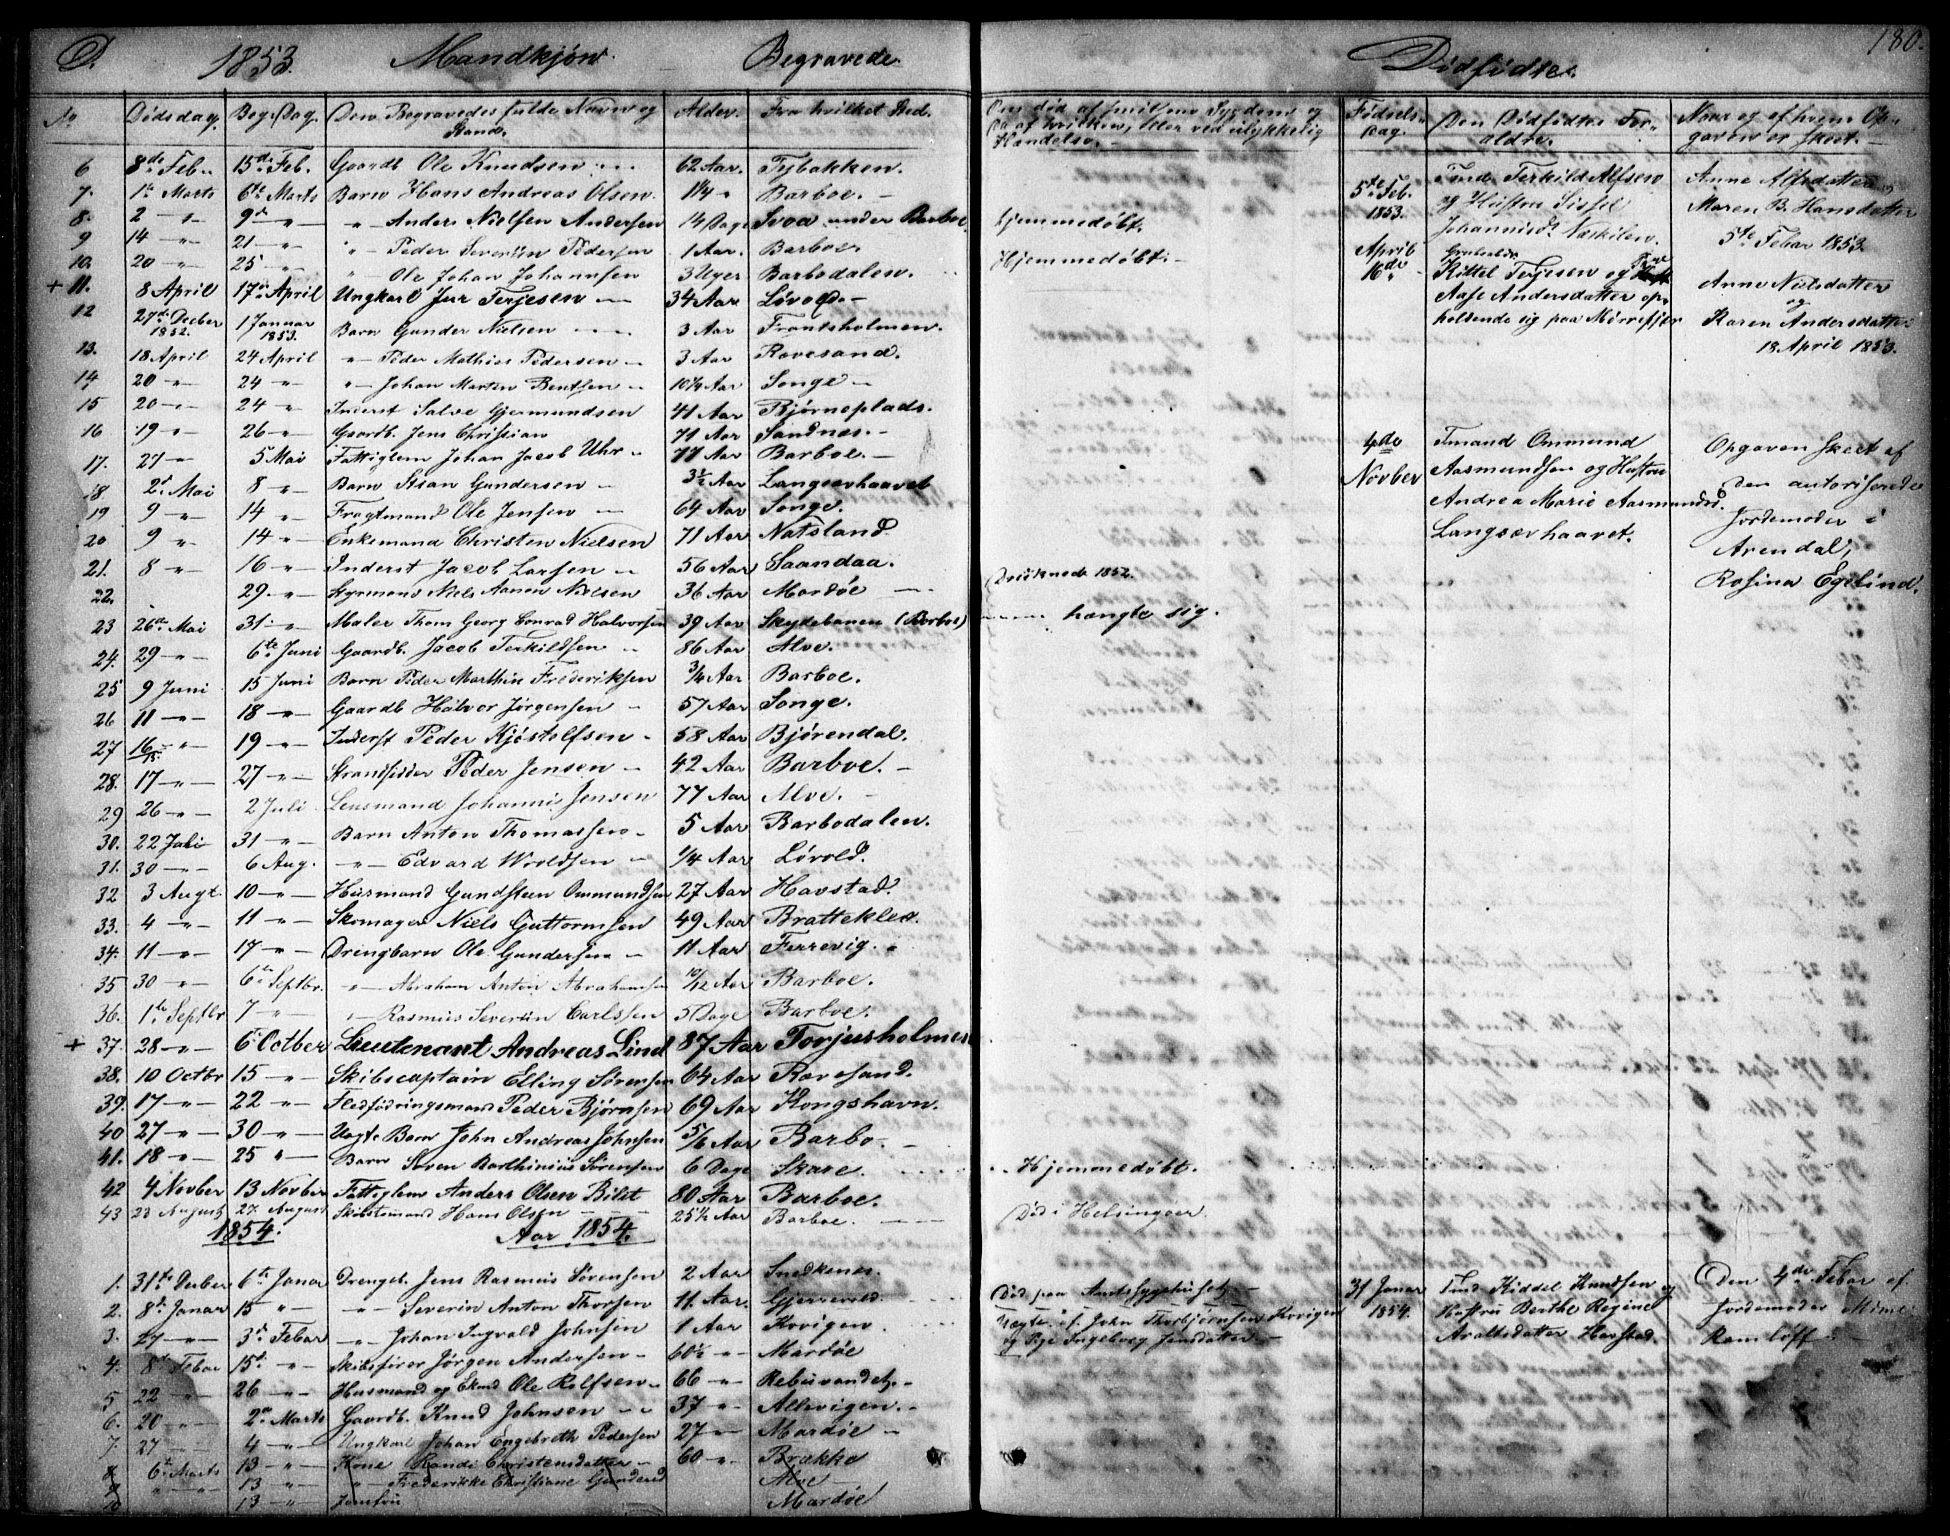 D. 1853. Mandkjøn. Begravede.
No Dødsdag. Beg. Dag. Den Begravedes fulde Navn og Stand. Alder. Fra hvilket Sted.
6 8de Feb. 15de Feb. Gaardb. Ole Knudsen 62 Aar. Tejbakken.
7. 1te Marts 6te Marts Barn Hans Andreas Olsen 1¼ " Barboe.
8. 2 " 9de " " Anders Nielsen Andersen 14 Dage Svoa under Barboe
9 14 " 21 " " Peder Severin Pedersen 1 Aar. Barboe.
10. 20 " 25 " " Ole Johan Johannsen 3 Uger Barbodalen.
+ 11. 8 April 17de April Ungkarl Jur Terjesen 34 Aar Løvold.
12 27de Decber 1852. 1 Januar 1853. Barn Gunder Nielsen 3 Aar Frantsholmen.
13. 18 April 24 April " Peder Mathias Pedersen 3 Aar Ravesand.
14 20 " 24 " " Johan Martin Bentsen 10¼ Aar Songe
15 20 " 24 " Inderst Salve Gjermundsen 41 Aar Bjørneplads.
16 19 " 26 " Gaardb. Jens Christian 71 Aar Sandnæs.
17. 27 " 5 Mai Fattiglem Johan Jacob Uhr 77 Aar Barboe.
18 2d Mai 8 " Barn Stian Gundersen 3½ Aar Langsævhaavet
19 9 " 14 " Fragtmand Ole Jensen 64 Aar Songe.
20 9 " 14 " Enkemand Christen Nielsen 71 Aar Natsland
21. 8 " 16 " Inderst Jacob Larsen 56 Aar Saandaa.
22. 29. " Styrmand Niels Aanon Nielsen 36 Aar Mardøe
23 26de Mai 31. " Maler Thom Georg Conrad Halvorsen 39 Aar Skydebanen (Barboe)
24. 29 " 6te Juni Gaardb. Jacob Terkildsen 86 Aar Alve.
25 9 Juni 15 Juni Barn Peder Marthin Frederiksen ¾ Aar Barboe.
26 11 " 18 " Gaardb Halvor Jørgensen 57 Aar Songe.
27 16 " 19 " Inderst Peder Kjøstolfsen 58 Aar Bjørendal.
28. 17 " 27 " Strandsidder Peder Jensen 42 Aar Barboe.
29 26 " 2 Juli Lensmand Johannis Jensen 77 Aar Alve.
30. 22 Juli 31 " Barn Anton Thomassen 5 Aar Barbodalen.
31. 30 " 6 Aug. " Edvard Woldsen ¼ Aar Løvold.
32 3 Augt. 10 " Husmand Gundsteen Ommundsen 27 Aar Havstad.
33. 4 " 11 " Skomager Niels Guttormsen 49 Aar Bratteklev.
34. 11 " 17 " Drengbarn Ole Gundersen 11 Aar Ferrevig.
35 30 " 6te Septbr. " Abraham Anton Abrahamsen 10/12 Aar Barboe.
36. 1te Septbr 7 " " Rasmus Severin Carlssen 5 Dage Barboe.
+ 37. 28 " 6te Octber Lieutenant Andreas Lind 87 Aar Torjusholmen
38. 10 Octbr 15 " Skibscaptain Elling Sørensen 64 Aar Ravesand.
39. 17 " 22 " Fledføringsmand Peder Bjørnsen 69 Aar Kongshavn.
40 27 " 30 " Uægte Barn John Andreas Johnsen 5/6 Aar Barbo
41. 18 " 25 " Barn Søren Barthinius Sørensen 6 Dage Skare.
42 4 Novber 13 Novber Fattiglem Anders Olsen Bilet 80 Aar Barboe.
43 23 August 27. August Skibstømmermand Hans Olsen 25½ Aar Barboe.
1854. Aar 1854.
1. 31te Decber 6te Januar Drengeb. Jens Rasmus Sørensen 2 Aar Snedkenes.
2. 8de Januar 15 " " Severin Anton Thorsen 11. Aar. Gjerrevold.
3. 27 " 3de Febar " Johan Ingvald Johnsen 1 Aar Kovigen
4. 8de Febar 15de " Skibsfører Jørgen Andersen 60½ " Mardøe
5 22 " 26 " Husmand og Ekmd Ole Rolfsen 66 " Rebuvandet.
6. 20 " 2den Marts Gaardb. Knud Johnsen 37 " Allevigen.
7. 27 " 4 " Ungkarl Johan Engebreth Pedersen 27 " Mardøe
8 6te Marts 13 " Kone Randi Christensdatter 60 " Brække
9 " 13 " " Frederikke Christiane Gundersd Alve
10 13 " Jomfru Mardøe
180.
Dødfødte.
Om død af smitsom Sygdom og
da af hvilken, eller ved ulykkelig
Hændelse.
Fødsels-Dag. Den Dødfødtes Forældre. Naar og af hvem Opgaven er skeet.
hjemmedøbt.
Hjemmedøbt.
5te Feb. 1853. Tind Terkild Alfsen
og Hustru Sissel
Johannisd. Næskilen.
Anne Alfsdatter
Maren B. Hansdatter
5te Febar 1853.
April 16de
Kittel Terjesen og
Aase Andersdatter op-
holdende sig paa Mørrefjær
Anne Nielsdatter
og
Karen Andersdatter
18. April 1853.
4de Novber
Tmand Ommund
Aasmundsen og Hustru
Andrea Marie Aasmundsd.
Langsævhaavet.
Opgaven skeet af
den autoriserede
Jordemoder i
Arendal,
Rosina Egelind.
Druknede 1852.
hængte sig.
Hjemmedøbt.
Død i Helsingoer.
Død paa Amtssygehuset
Uægte. af John Thorbjørnsen Kovigen
og Pige Ingeborg Jensdatter
31 Januar 1854. Tind Kiddel Knudsen og
Hustru Berthe Regine
Araltsdatter Havstad.
Den 4de Febar af
Jordemoder Mime
Ramløff